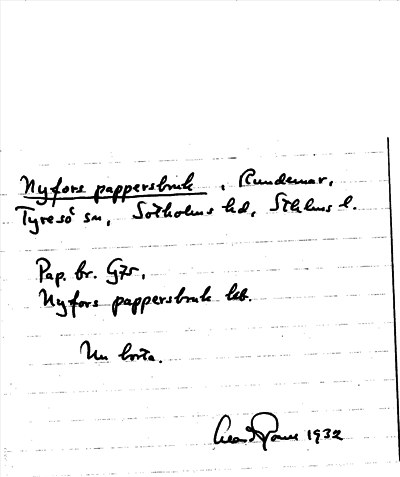 Nyfors pappersbruk, Rundemar,
Tyresö sn, Sotholms hd, Sthlms l.
Pap. br. G75,
Nyfors pappersbruk kb.
Nu borta.
1932